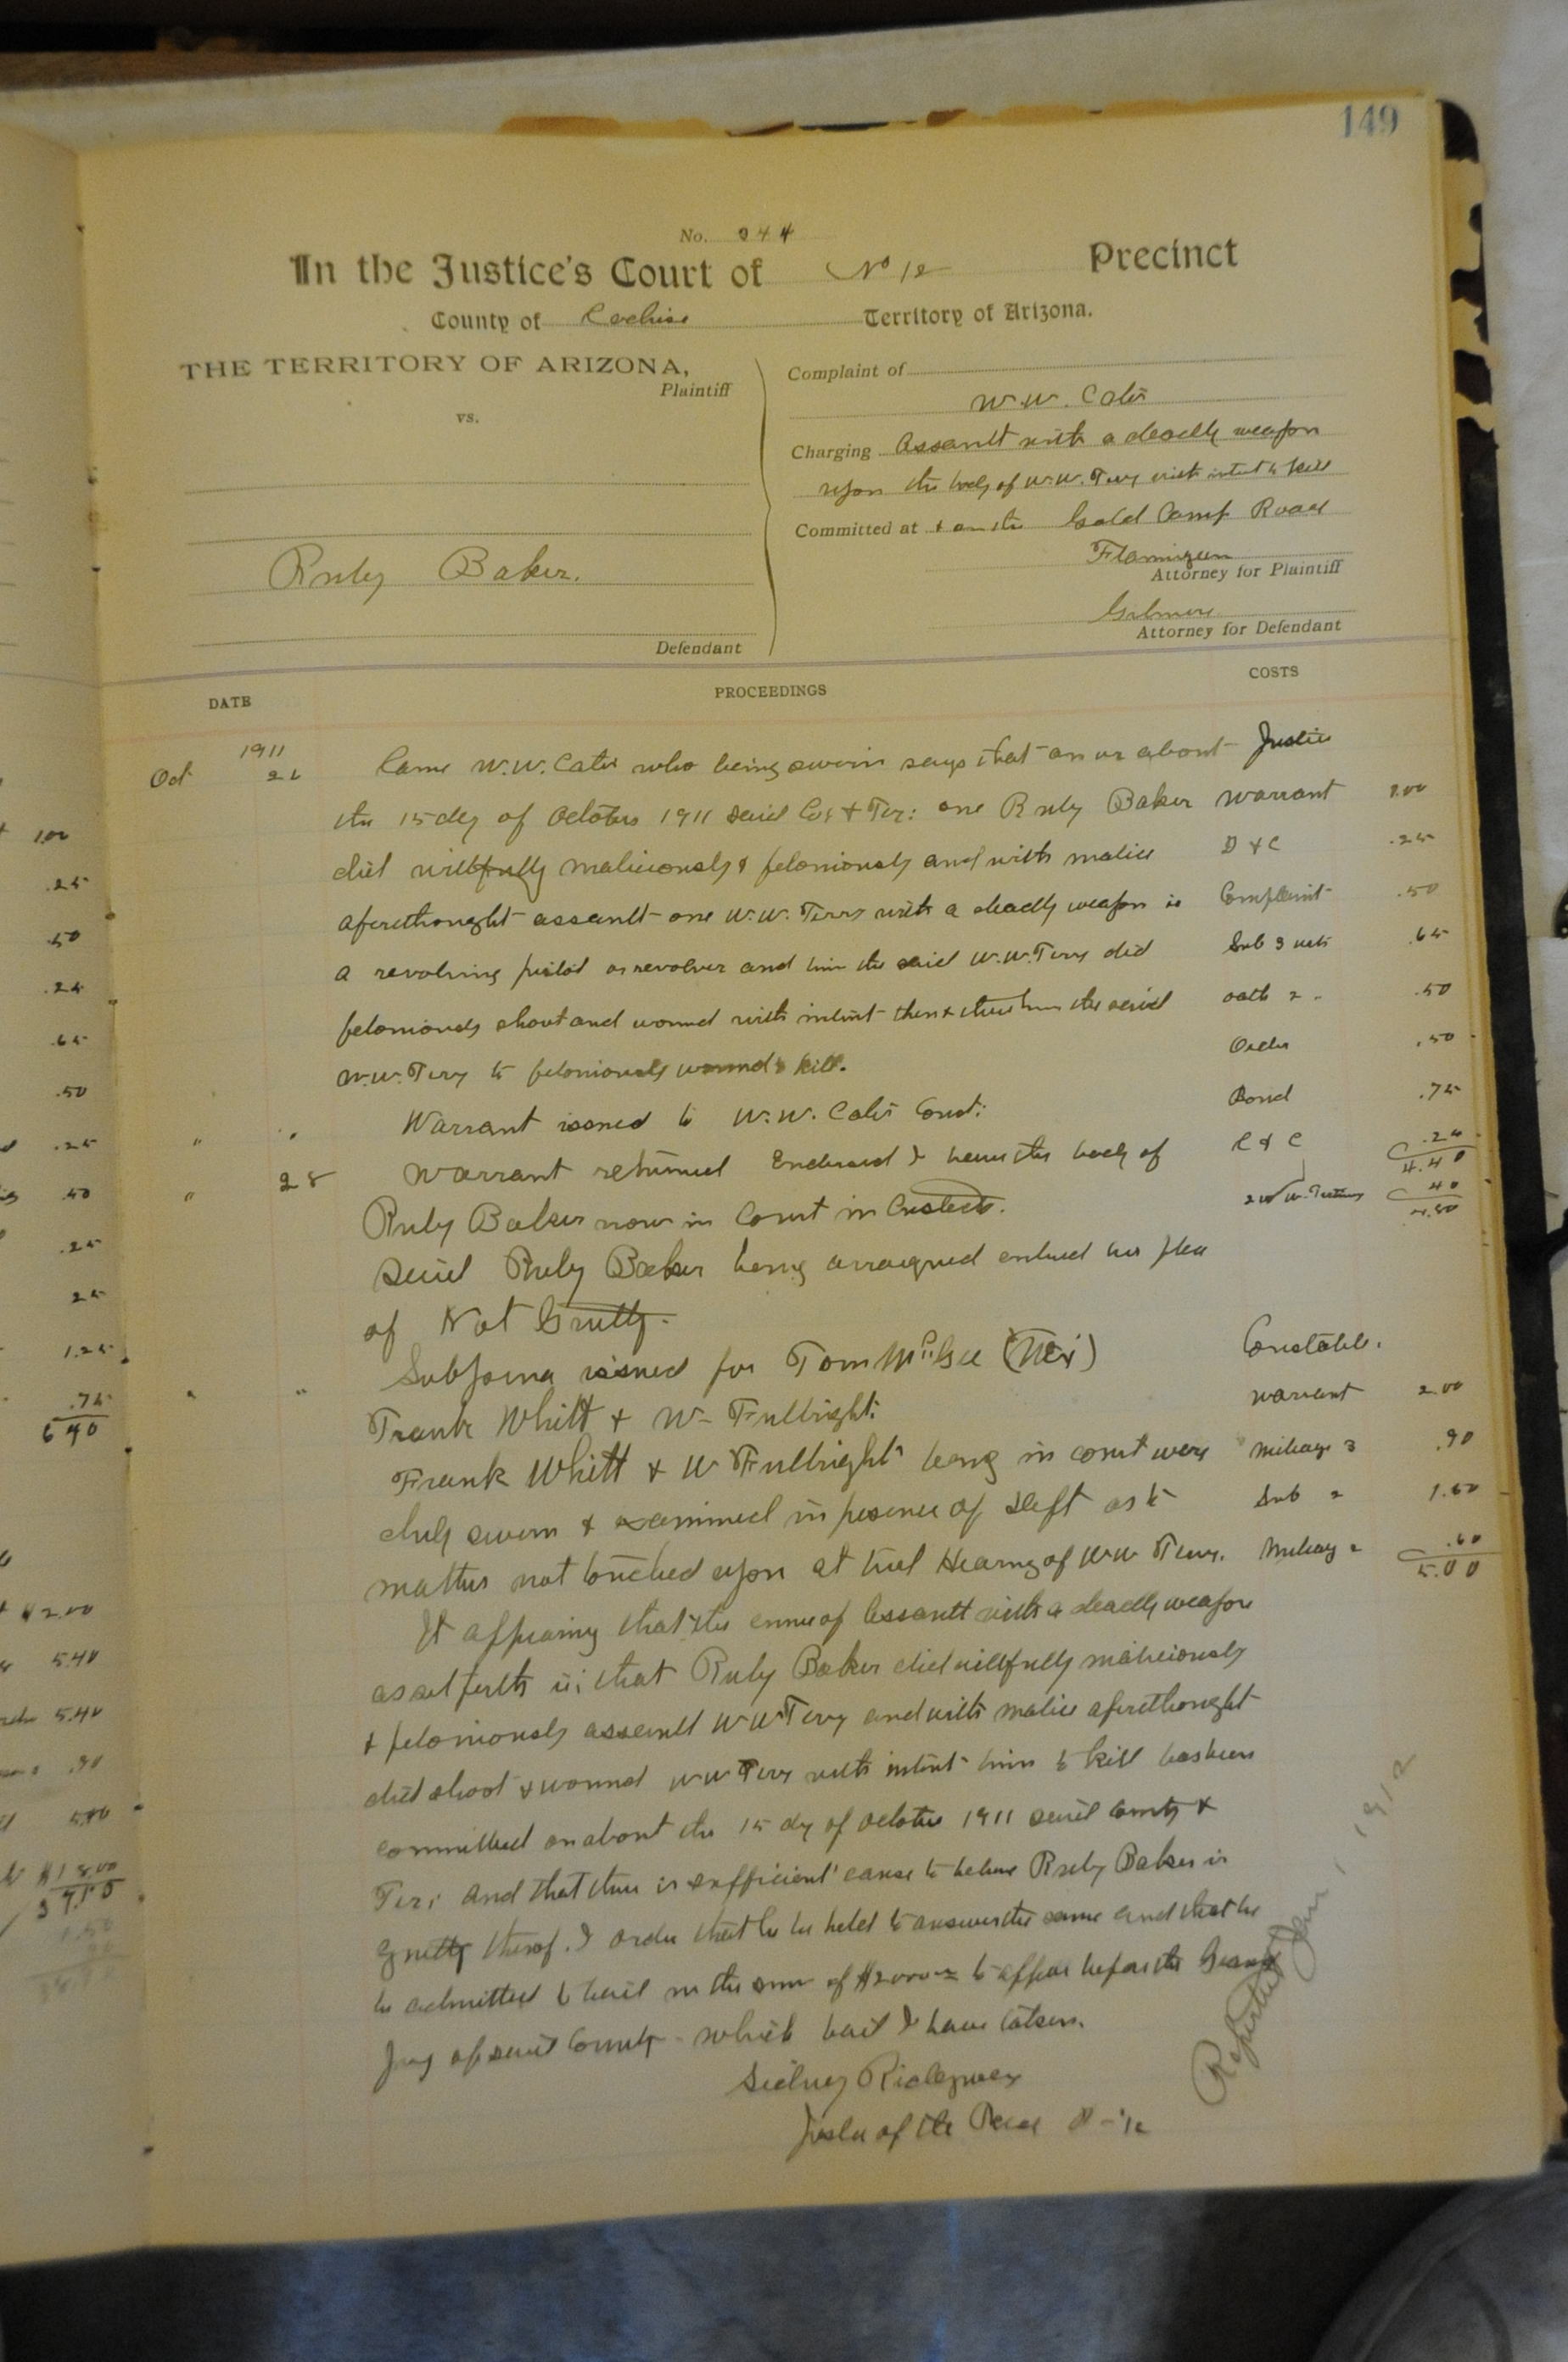 149
No. 344
In the Justice's Court of No 12 Precinct
County of Cochise Territory of Arizona.
THE TERRITORY OF ARIZONA,
Plaintiff
vs.
Ruby Baker.
Defendant
Complaint of
W.W. Cates
Charging Assault with a deadly weapon
upon the body of W.W. Terry with intent to kill
Committed at & on the Gold Camp Road
Flannigan
Attorney for Plaintiff
Gilmore
Attorney for Defendant
DATE PROCEEDINGS COSTS
1911
Oct 26 Came W.W. Cates who being sworn says that on or about Justice
the 15 day of October 1911 said Co; & Ter: one Ruby Baker Warrant 1.00
did willfully maliciously & feloniously and with malice D & C .25
aforethought assault one W.W. Terry with a deadly weapon is Complaint .50
a revolving pistol or revolver and him the said W.W. Terry did Sub 3 .65
feloniously shoot and wound with intent then & there him the said oath 2 .50
W.W. Terry to feloniously wound & kill. Order .50
" " Warrant issued to W.W. Cates Const: Bond .75
" 28 Warrant returned Endorsed I have the body of C & C .25
4.40
Ruby Baker now in Court in Custody. 40
4.80
Said Ruby Baker being arraigned entered his plea
of Not Guilty.
" " Subpoena issued for Tom McGee (Mex) Constable.
Frank Whitt & W- Fulbright. warrant 2.00
Frank Whitt & W Fulbright being in court were mileage 3 .90
duly sworn & examined in presence of Deft as to Sub 2 1.50
matters not touched upon at trial Hearing of W W Terry. Mileage 2 .60
5.00
It appearing that the crime of Assault with a deadly weapon
as set forth is; that Ruby Baker did willfully maliciously
& feloniously assault W W Terry and with malice aforethought
did shoot & wound W W Terry with intent him to kill has been
committed on about the 15 dy of October 1911 said County &
Ter; and that there is sufficient cause to believe Ruby Baker is
guilty thereof. I order that he be held to answer the same and that he
be admitted to bail in the sum of $2000 to appear before the Grand
Jury of said County - which bail I have taken.
Sidney Ridgway
Justice of the Peace
Reported Jan 1 1912
1.00
.25
.50
.25
.65
.50
.25
.50
.25
25
1.25
.75
6 40
$2.00
5.40
5.40
.90